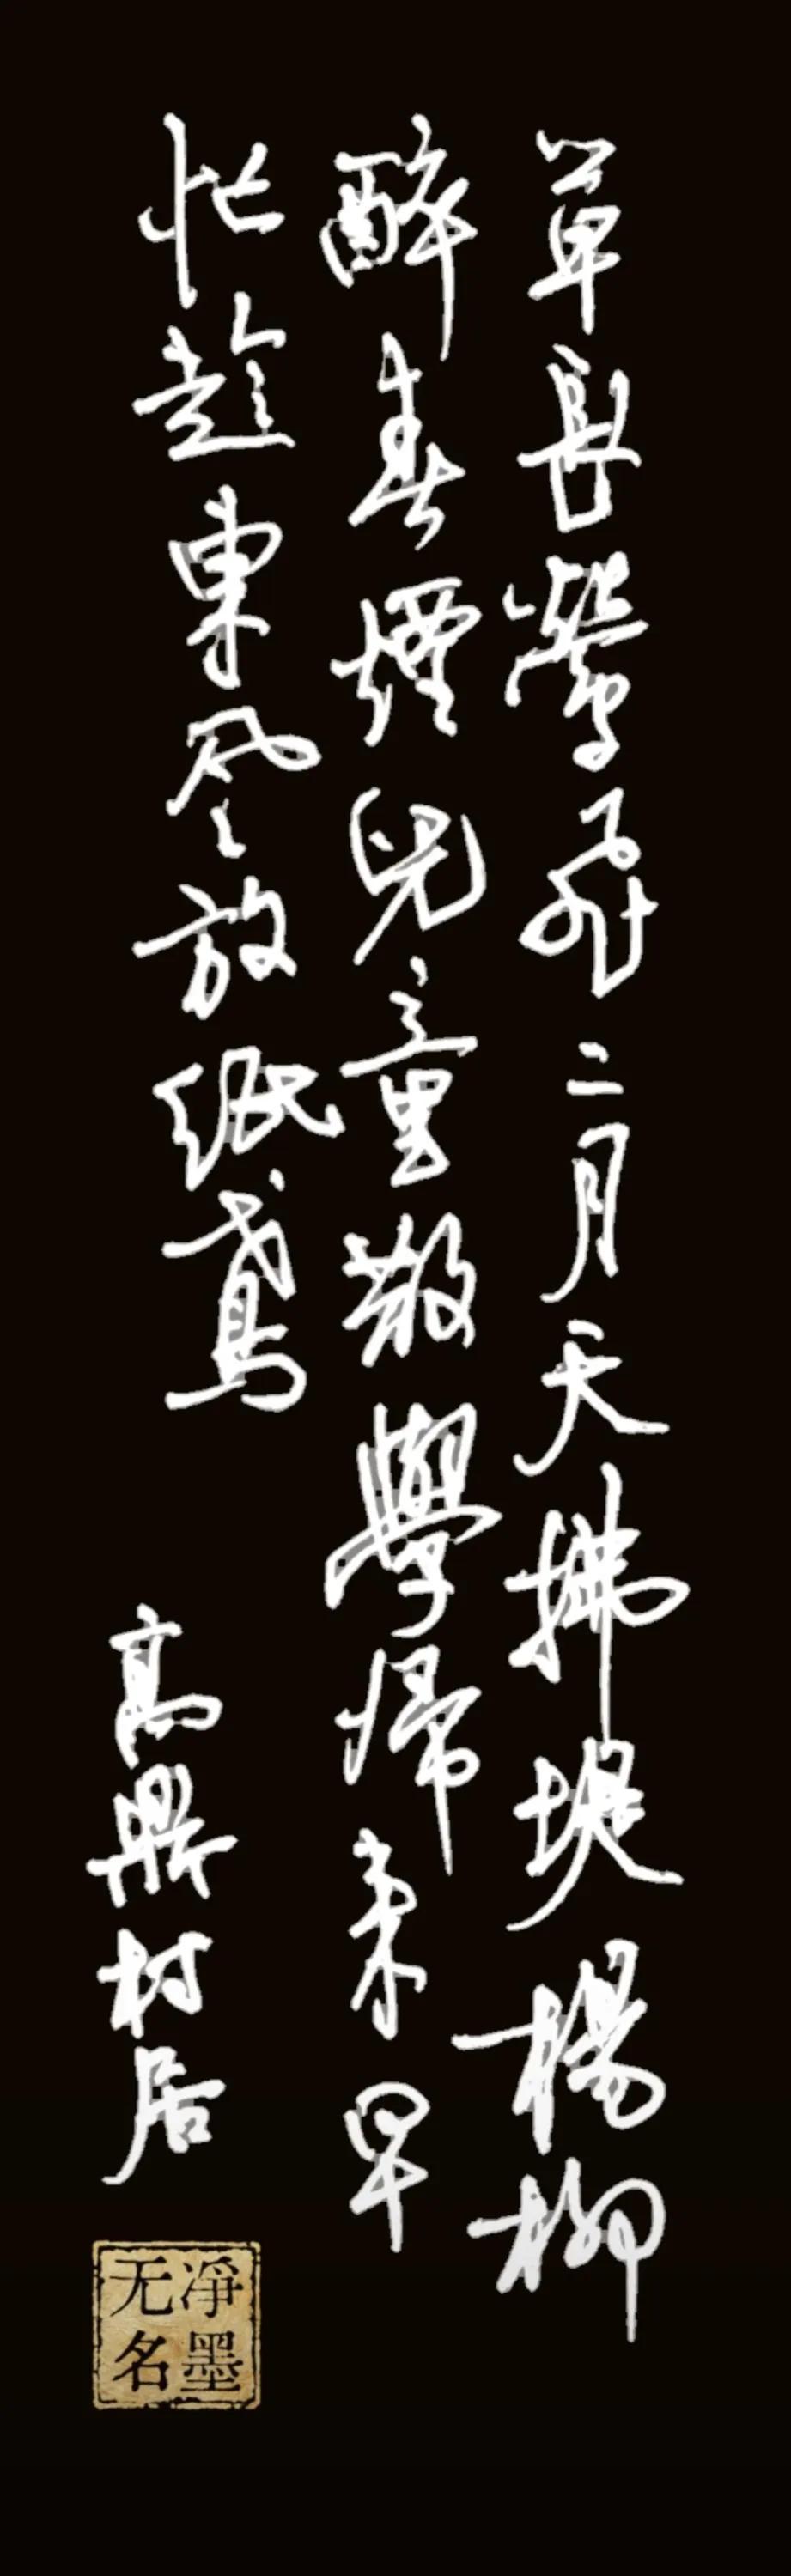 草長鶯飛二月天拂堤楊柳
醉春煙兒童散學歸來早
忙趁東風放紙鳶
高鼎村居
淨墨
无名